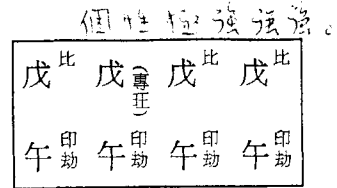 個性極強強強。
戊比 戊(專旺) 戊比 戊比
午印劫 午印劫 午印劫 午印劫